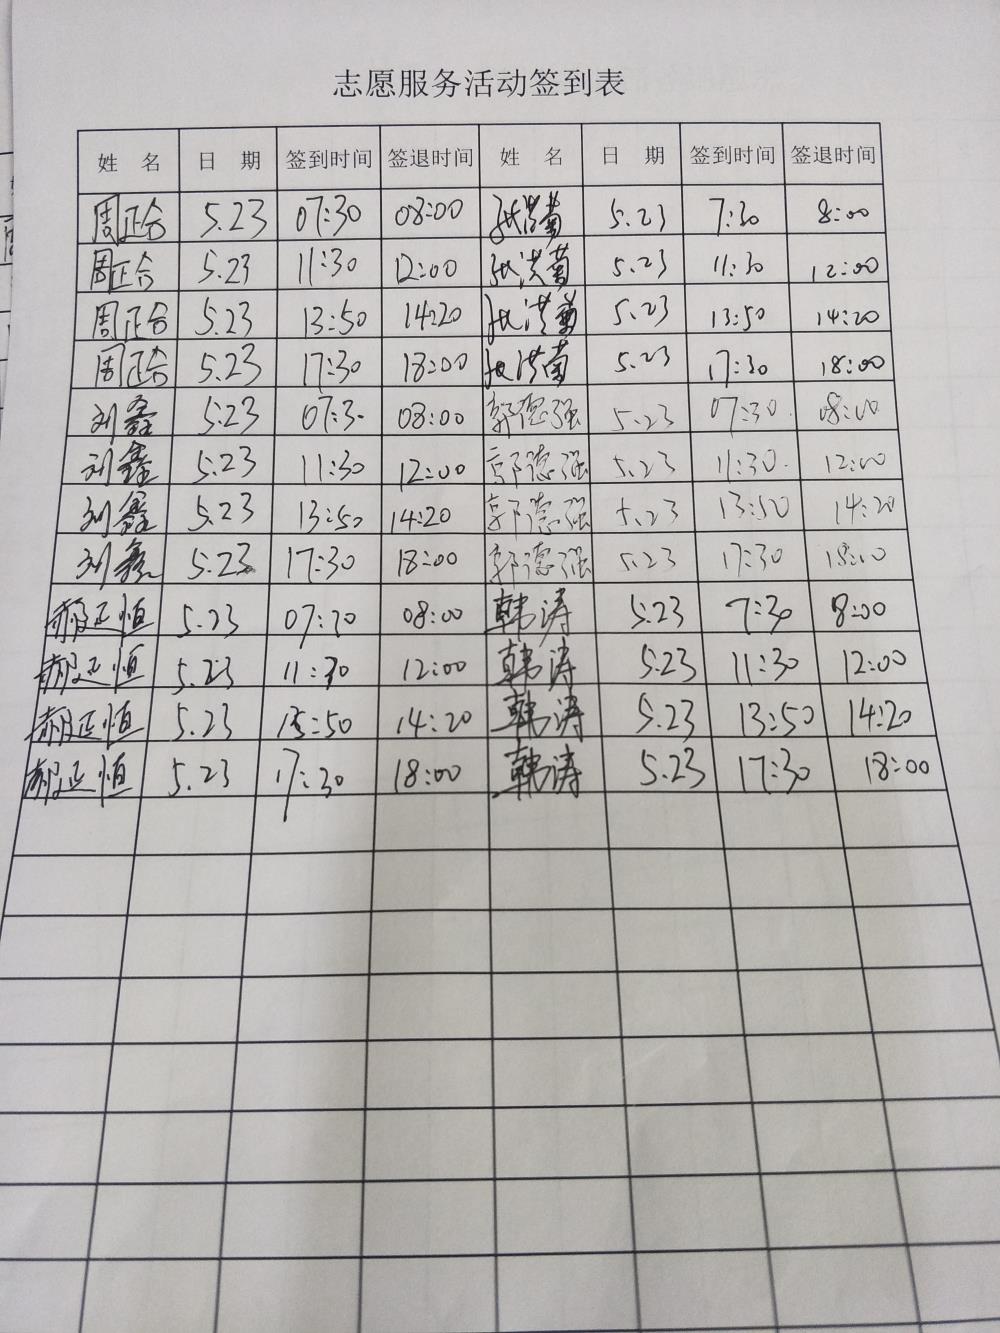 志愿服务活动签到表
姓 名 日 期 签到时间 签退时间 姓 名 日 期 签到时间 签退时间
周正合 5.23 07:30 08:00 张洪菊 5.23 7:30 8:00
周正合 5.23 11:30 12:00 张洪菊 5.23 11:30 12:00
周正合 5.23 13:50 14:20 张洪菊 5.23 13:50 14:20
周正合 5.23 17:30 18:00 张洪菊 5.23 17:30 18:00
刘鑫 5.23 07:3· 08:00 郭德强 5.23 07:30 08:00
刘鑫 5.23 11:30 12:00 郭德强 5.23 11:30 12:00
刘鑫 5.23 13:50 14:20 郭德强 5.23 13:50 14:20
刘鑫 5.23 17:30 18:00 郭德强 5.23 17:30 18:00
郝正恒 5.23 07:30 08:00 韩涛 5.23 7:30 8:00
郝正恒 5.23 11:30 12:00 韩涛 5.23 11:30 12:00
郝正恒 5.23 13:50 14:20 韩涛 5.23 13:50 14:20
郝正恒 5.23 17:30 18:00 韩涛 5.23 17:30 18:00